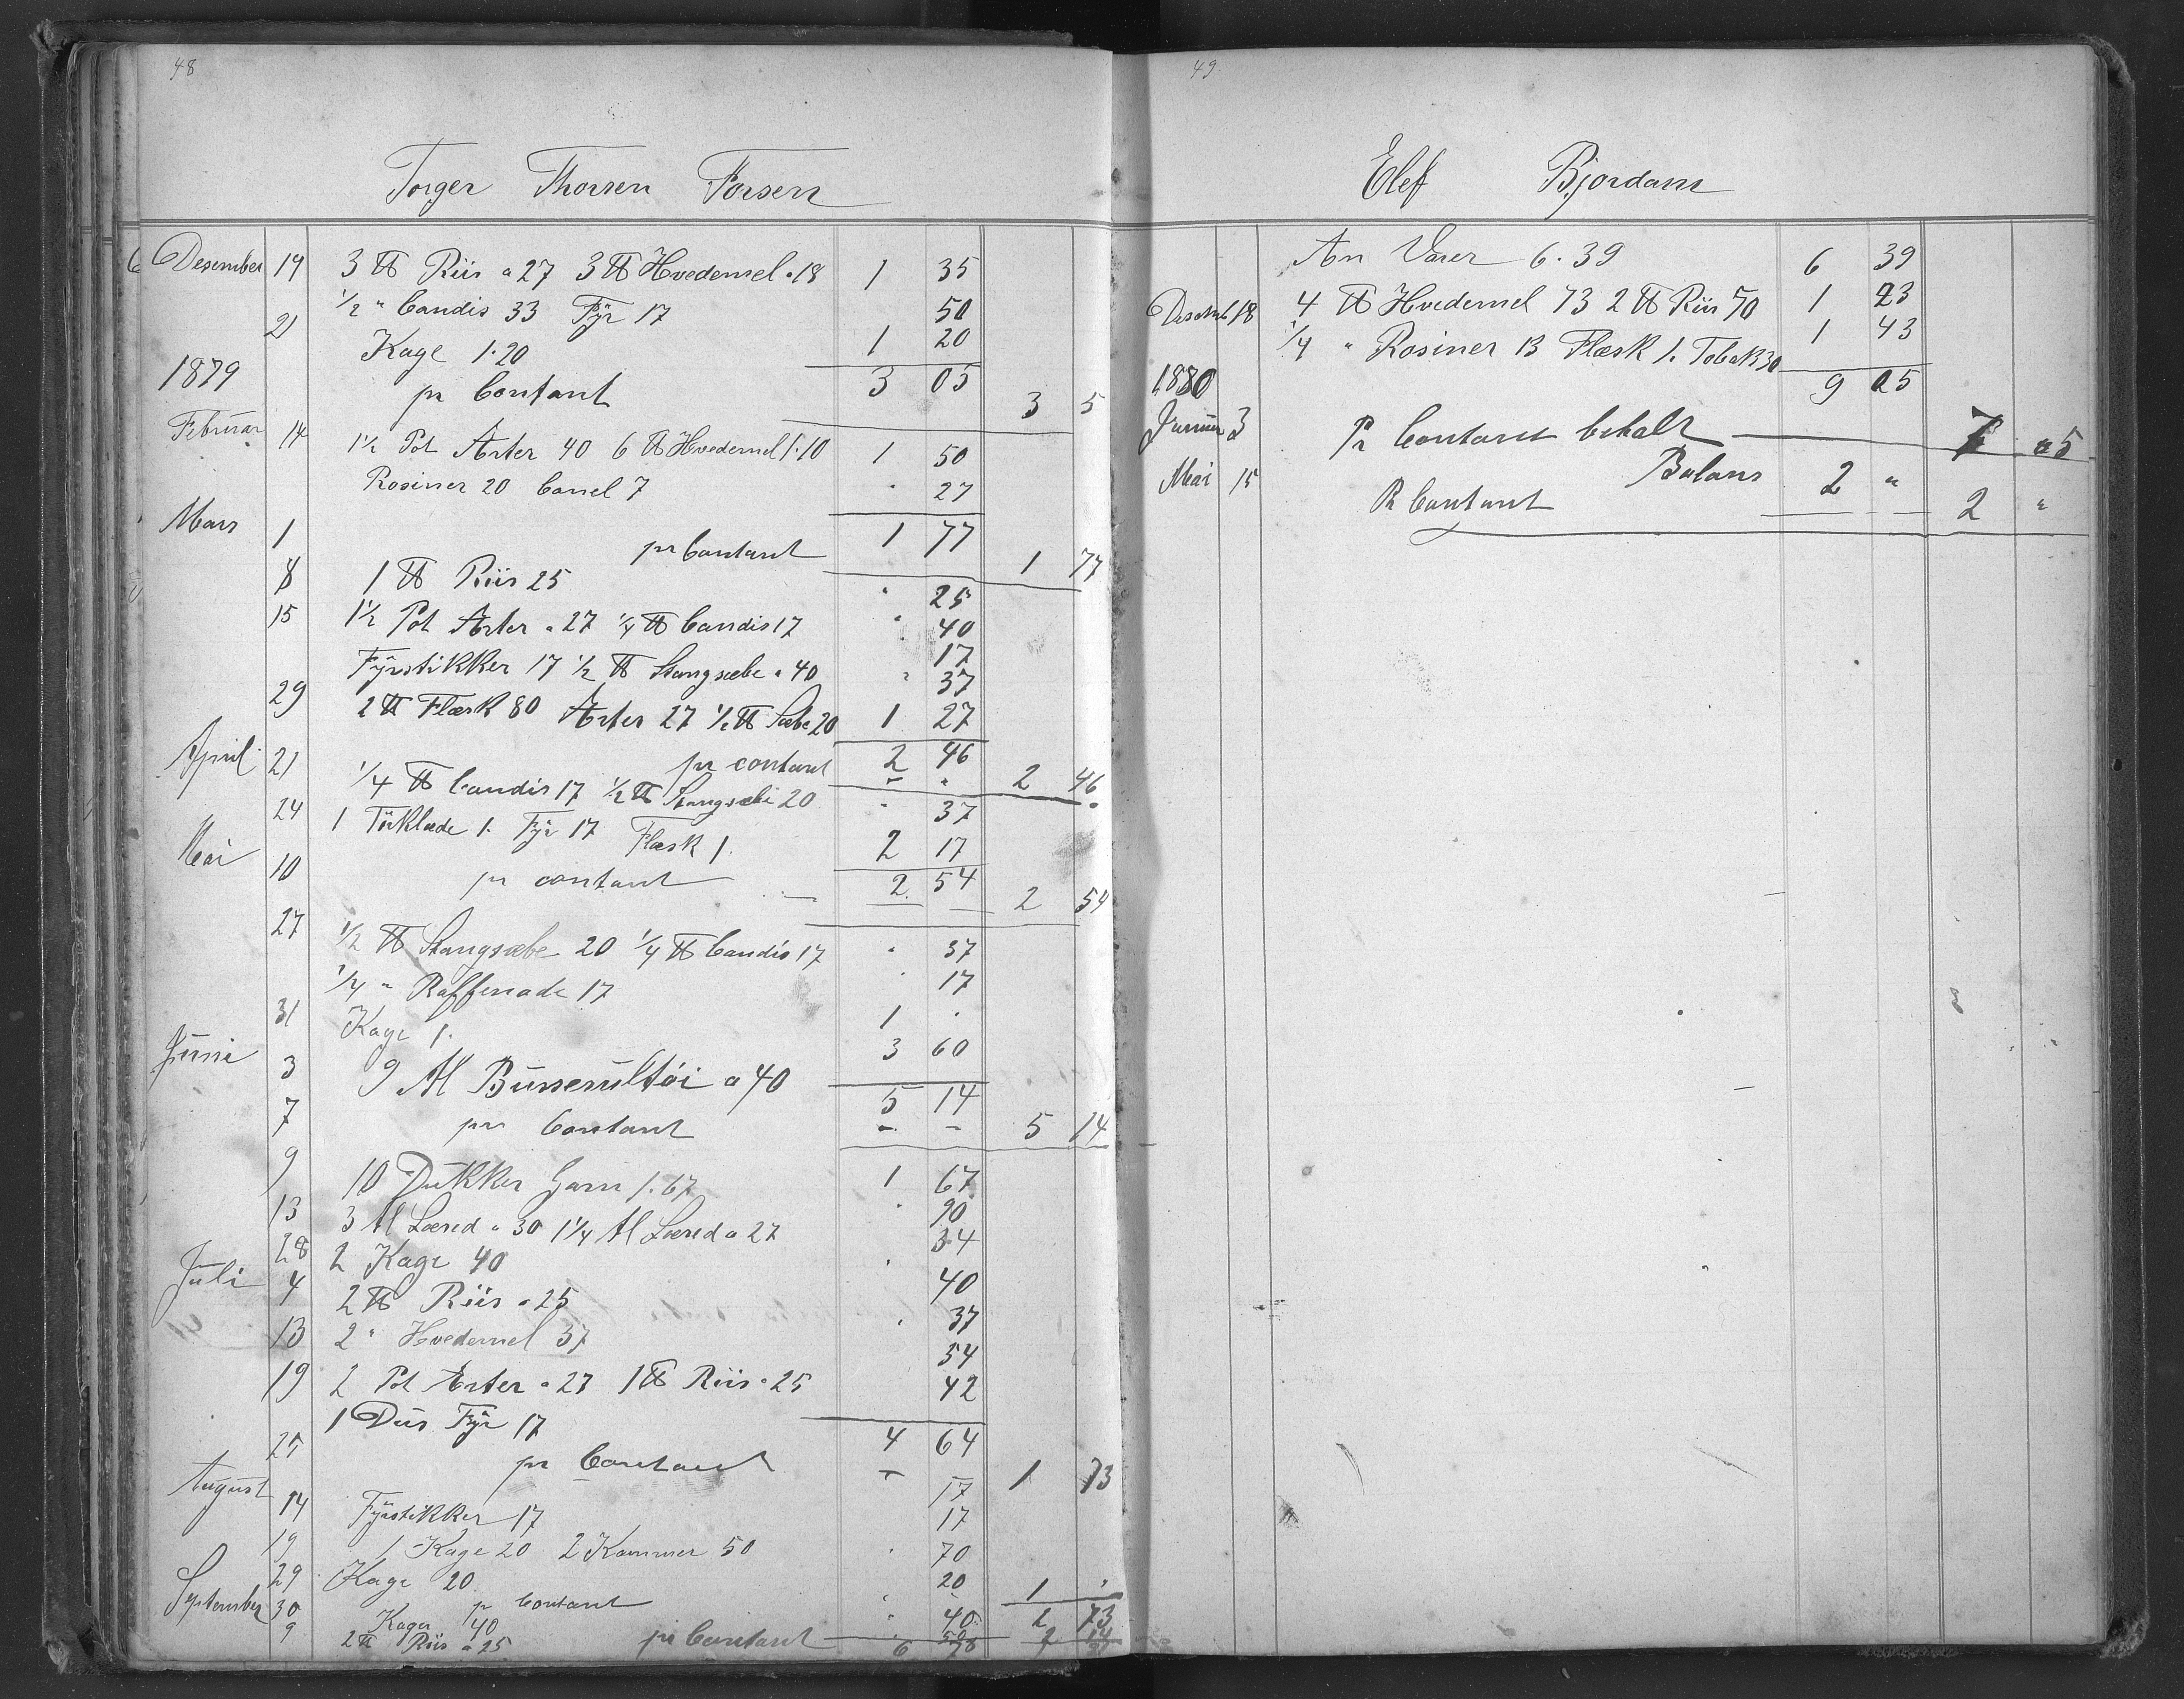 48
Torger Thorsen Forsen
Desember 14 3 ℔ Riis a 27 3 ℔ Hvedemel a 18 1 35
½ " Candis 33 Fyr 17 50
21 Kage 1.20 1 20
1879 pr Contant 3 05 3 5
Februar 14 1½ Pot Ærter 40 6 ℔ Hvedemel 1.10 1 50
Rosiner 20 Canel 7 " 27
Mars 1 pr Contant 1 77 1 77
8 1 ℔ Riis 25 " 25
15 1½ Pot Ærter a 27 ¼ ℔ Candis 17 " 40
17
Fyrstikker 17 ½ ℔ Stangsæbe a 40 " 37
29 2 ℔ Flæsk 80 Ærter 27 ½ ℔ Sæbe 20 1 27
April 21 pr contant 2 46 2 46
¼ ℔ Candis 17 ½ ℔ Stangsæbe 20 " 37
24 1 Törklæde 1. Fyr 17 Flæsk 1. 2 17
Mai 10 pr contant 2 54 2 54
27 ½ ℔ Stangsæbe 20 ¼ ℔ Candis 17 " 37
¼ " Raffenade 17 " 17
31 Kage 1. 1 "
Juni 3 9 Al Busserultöi a 40 3 60
7 pr Contant 5 14 5 14
9 10 Dukker Garn 1.67 1 67
13 3 Al Lærred a 30 1¼ Al Lærred a 27 " 90
34
28 2 Kage 40 " 40
Juli 4 2 ℔ Riis a 25
13 2 " Hvedemel 37 " 37
19 2 Pot Ærter a 27 1 ℔ Riis a 25 54
42
1 Dus Fyr 17
25 pr Contant 4 64 1 73
August 14 Fyrstikker 17 17
17
19 1 Kage 20 2 Kammer 50 " 70
29 Kage 20 20
30 pr Contant 1 "
September Kager 40 " 40 2 73
9 2 ℔ Riis a 25 pr Contant 50
6 28
49
Elef Bjordam
An Varer 6.39 6 39
Desemb 18 4 ℔ Hvedemel 73 2 ℔ Riis 50 1 23
¼ " Rosiner 13 Flæsk 1. Tobak 30 1 43
1880 9 05
Januar 3 Pr Contant betalt 7 05
Balans 2 "
Mai 15 Pr Contant 2 "